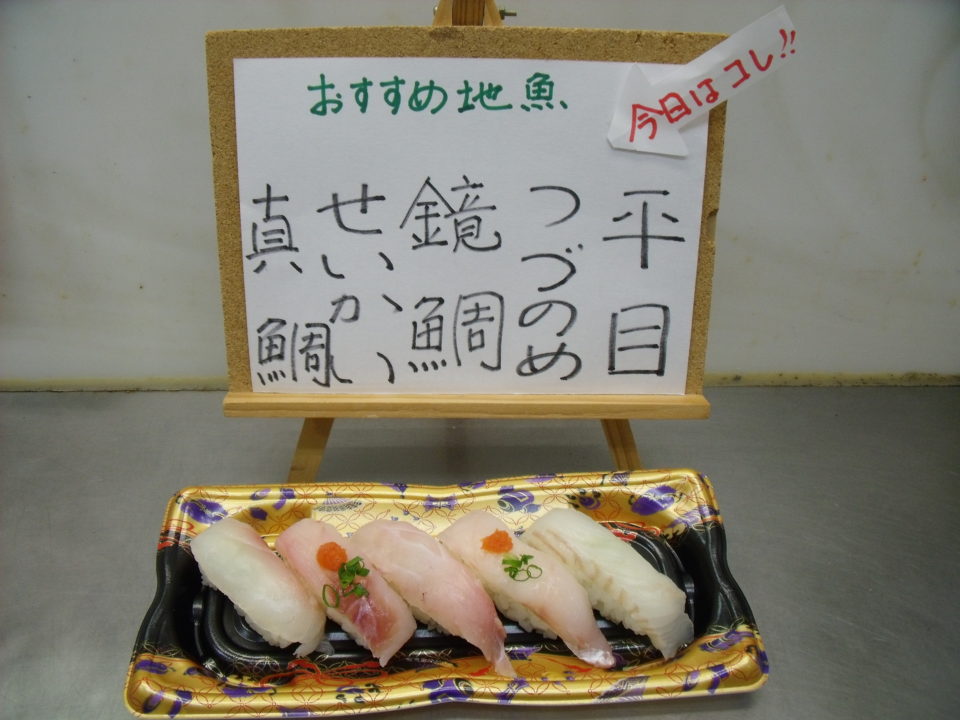 おすすめ地魚
今日はコレ!!
平目
つづのめ
鏡鯛
せいかい
真鯛